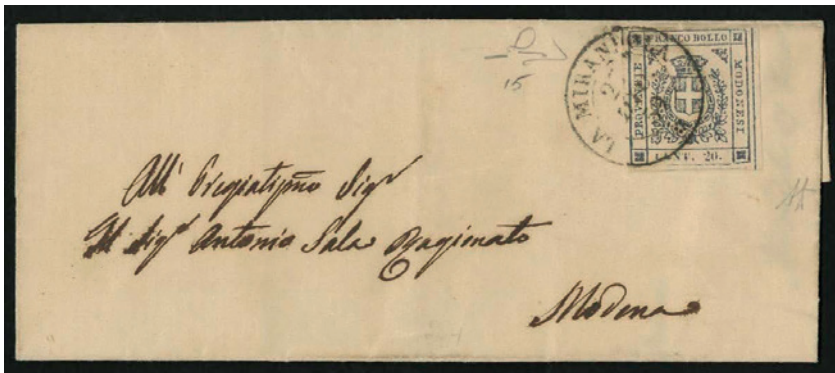 15
LA MIRANDOLA
FRANCO BOLLO
PROVINCIE
MODONESI
CENT. 20.
All' Pregiatissmo Sigr
Il Sigr Antonio Sala Ragionato
Modena